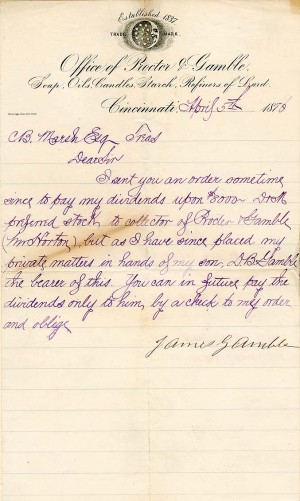 Established 1837
TRADE MARK.
Office of Procter & Gamble.
Soap, Oils, Candles, Starch, Refiners of Lard.
Cincinnati, April 5th 187
C.B. Marsh Esq Treas
Dear Sir
I sent you an order sometime
since to pay my dividends upon $3000 D&M
preferred stock to collector of Procter & Gamble
(Mr Horton), but as I have since placed my
private matters in hands of my son, D.B. Gamble
the bearer of this. You can in future pay the
dividends only to him, by a check to my order
and oblige
James Gamble